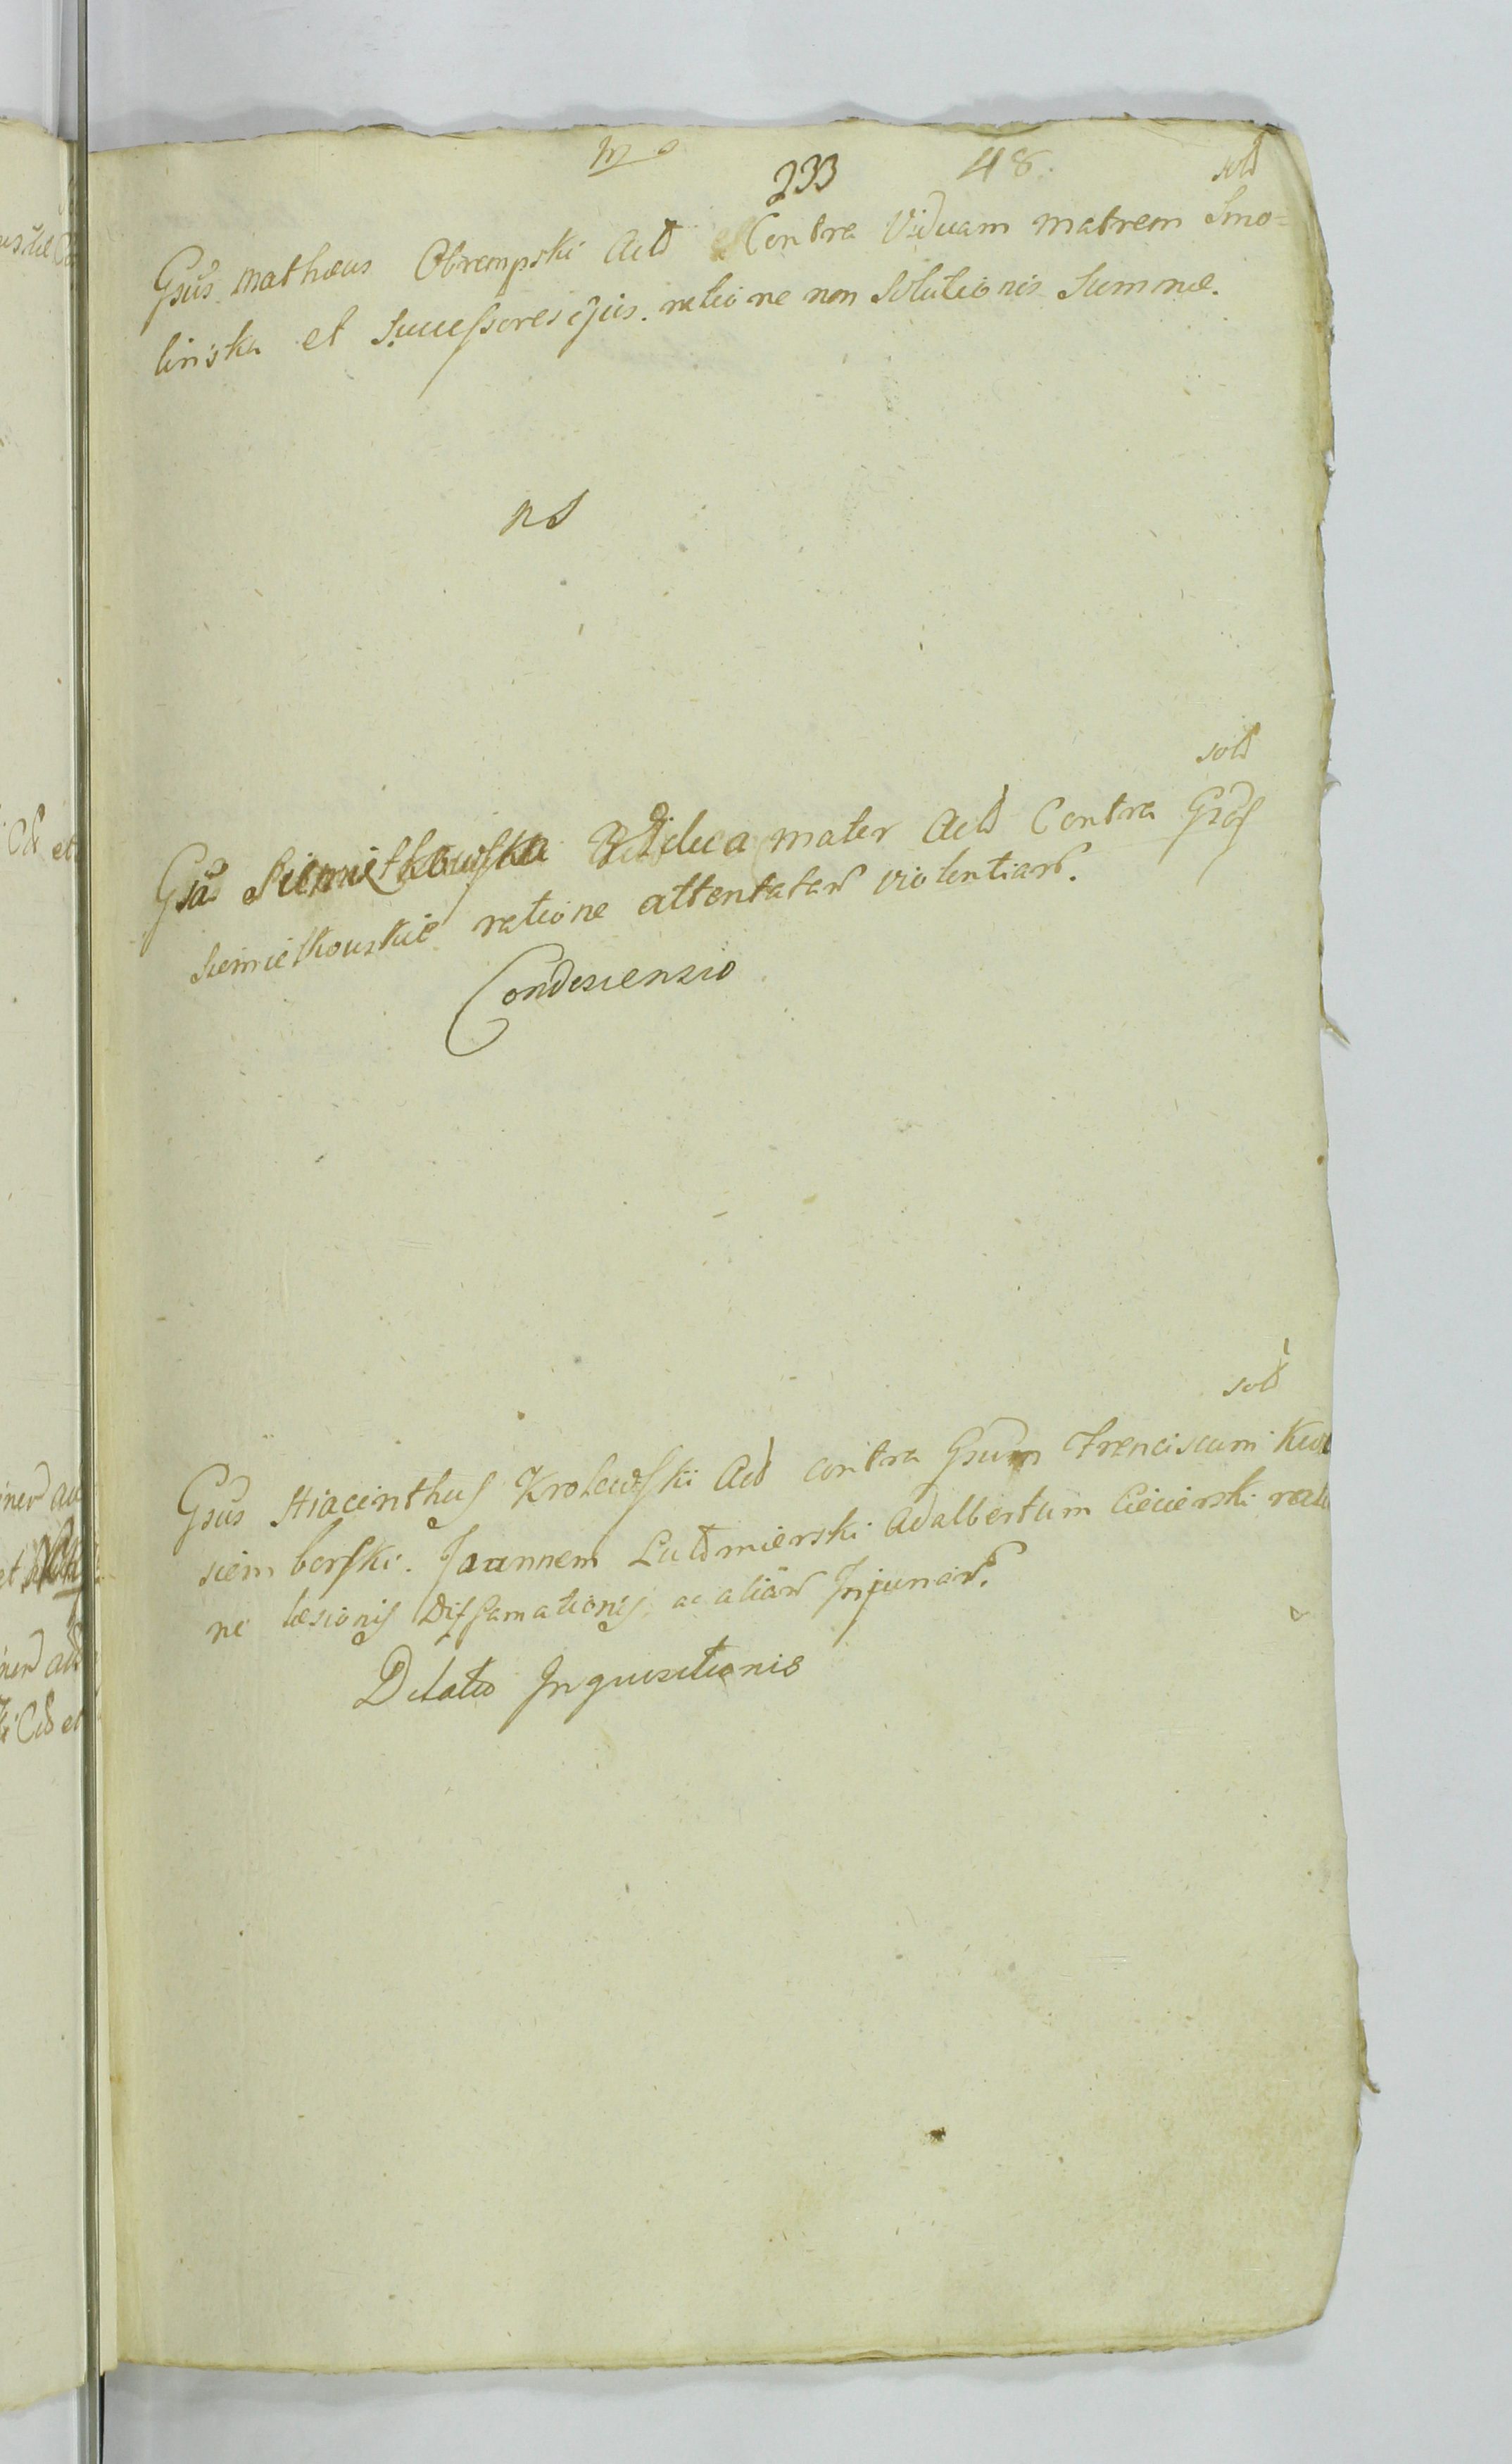 233 48.
sold
Gsus Matheus Obrempski Actd Contra Viduam matrem Smo=
linska et Successores ejus. ratione non Solutionis Summæ.
ns
sold
Gsa Siemietkowska Vidua mater Actd Contra Gsos
Siemietkouskie ratione attentatar violentiar.
Condescensio
sold
Gsus Hiacinthus Krolewski Actd contra Gsum Franciscum Kw
siemborski. Joannem Ludmierski Adalbertum Ciecierski ratio
ne læsionis Diffamationis ac aliar Injuriar.
Dilatio Inquisitionis